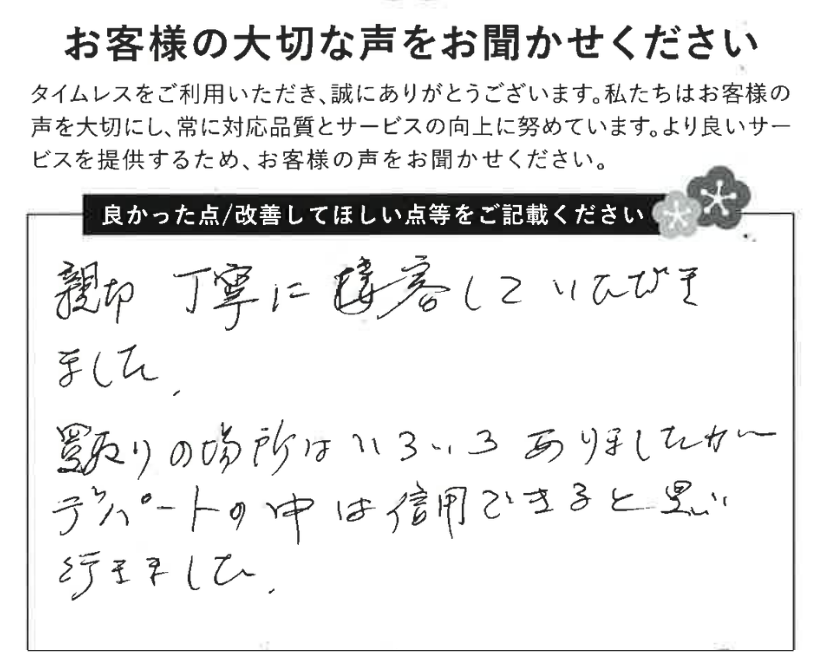 お客様の大切な声をお聞かせください
タイムレスをご利用いただき、誠にありがとうございます。私たちはお客様の
声を大切にし、常に対応品質とサービスの向上に努めています。より良いサー
ビスを提供するため、お客様の声をお聞かせください。
良かった点/改善してほしい点等をご記載ください
親切 丁寧に接客していただき
ました.
買取りの場所はいろいろありましたが
デパートの中は信用できると思い
行きました.